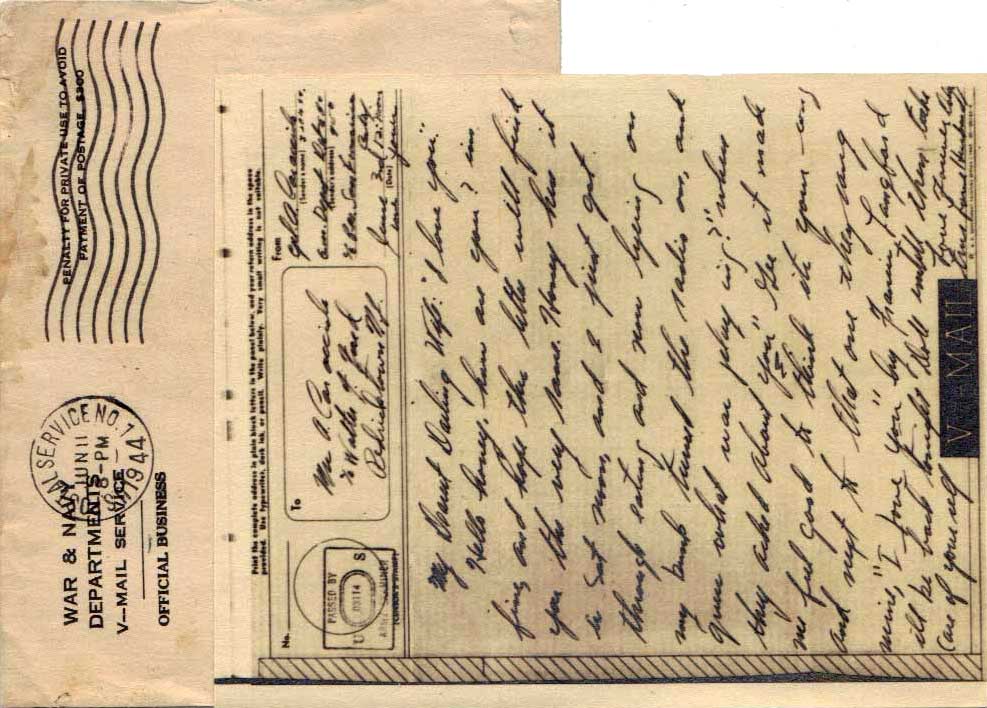 WAR & NAVY
DEPARTMENTS
V-MAIL SERVICE
OFFICIAL BUSINESS
POSTAL SERVICE NO.
JUN 11
8-PM
1944
PENALTY FOR PRIVATE USE TO AVOID
PAYMENT OF POSTAGE $300
Print the complete address in plain block letters in the panel below, and your return address in the space
provided. Use typewriter, dark ink, or pencil. Write plainly. Very small writing is not suitable.
No.
PASSED BY
U S
ARMY EXAMINER
To
Mrs A.
% Walter
From
(Sender's name)
(Sender's address)
% P.M. San Francisco
Calif.
June 3rd
(Date)
My Sweet Daring Wife. "I love you."
Hello honey, how are you? im
fine and hope this letter will find
you the very same. Honey this is
a Sat noon, and I just got
through eating and now lying on
my bunk turned the radio on, and
guess what was playing? "when
they asked about you" Gee it made
me feel good to think its your song
and next to that one they sang
mine, "I love you" by Francis Langford
ill be back tonight. Well until then take
care of yourself
Love Forever,
Husband
V-MAIL